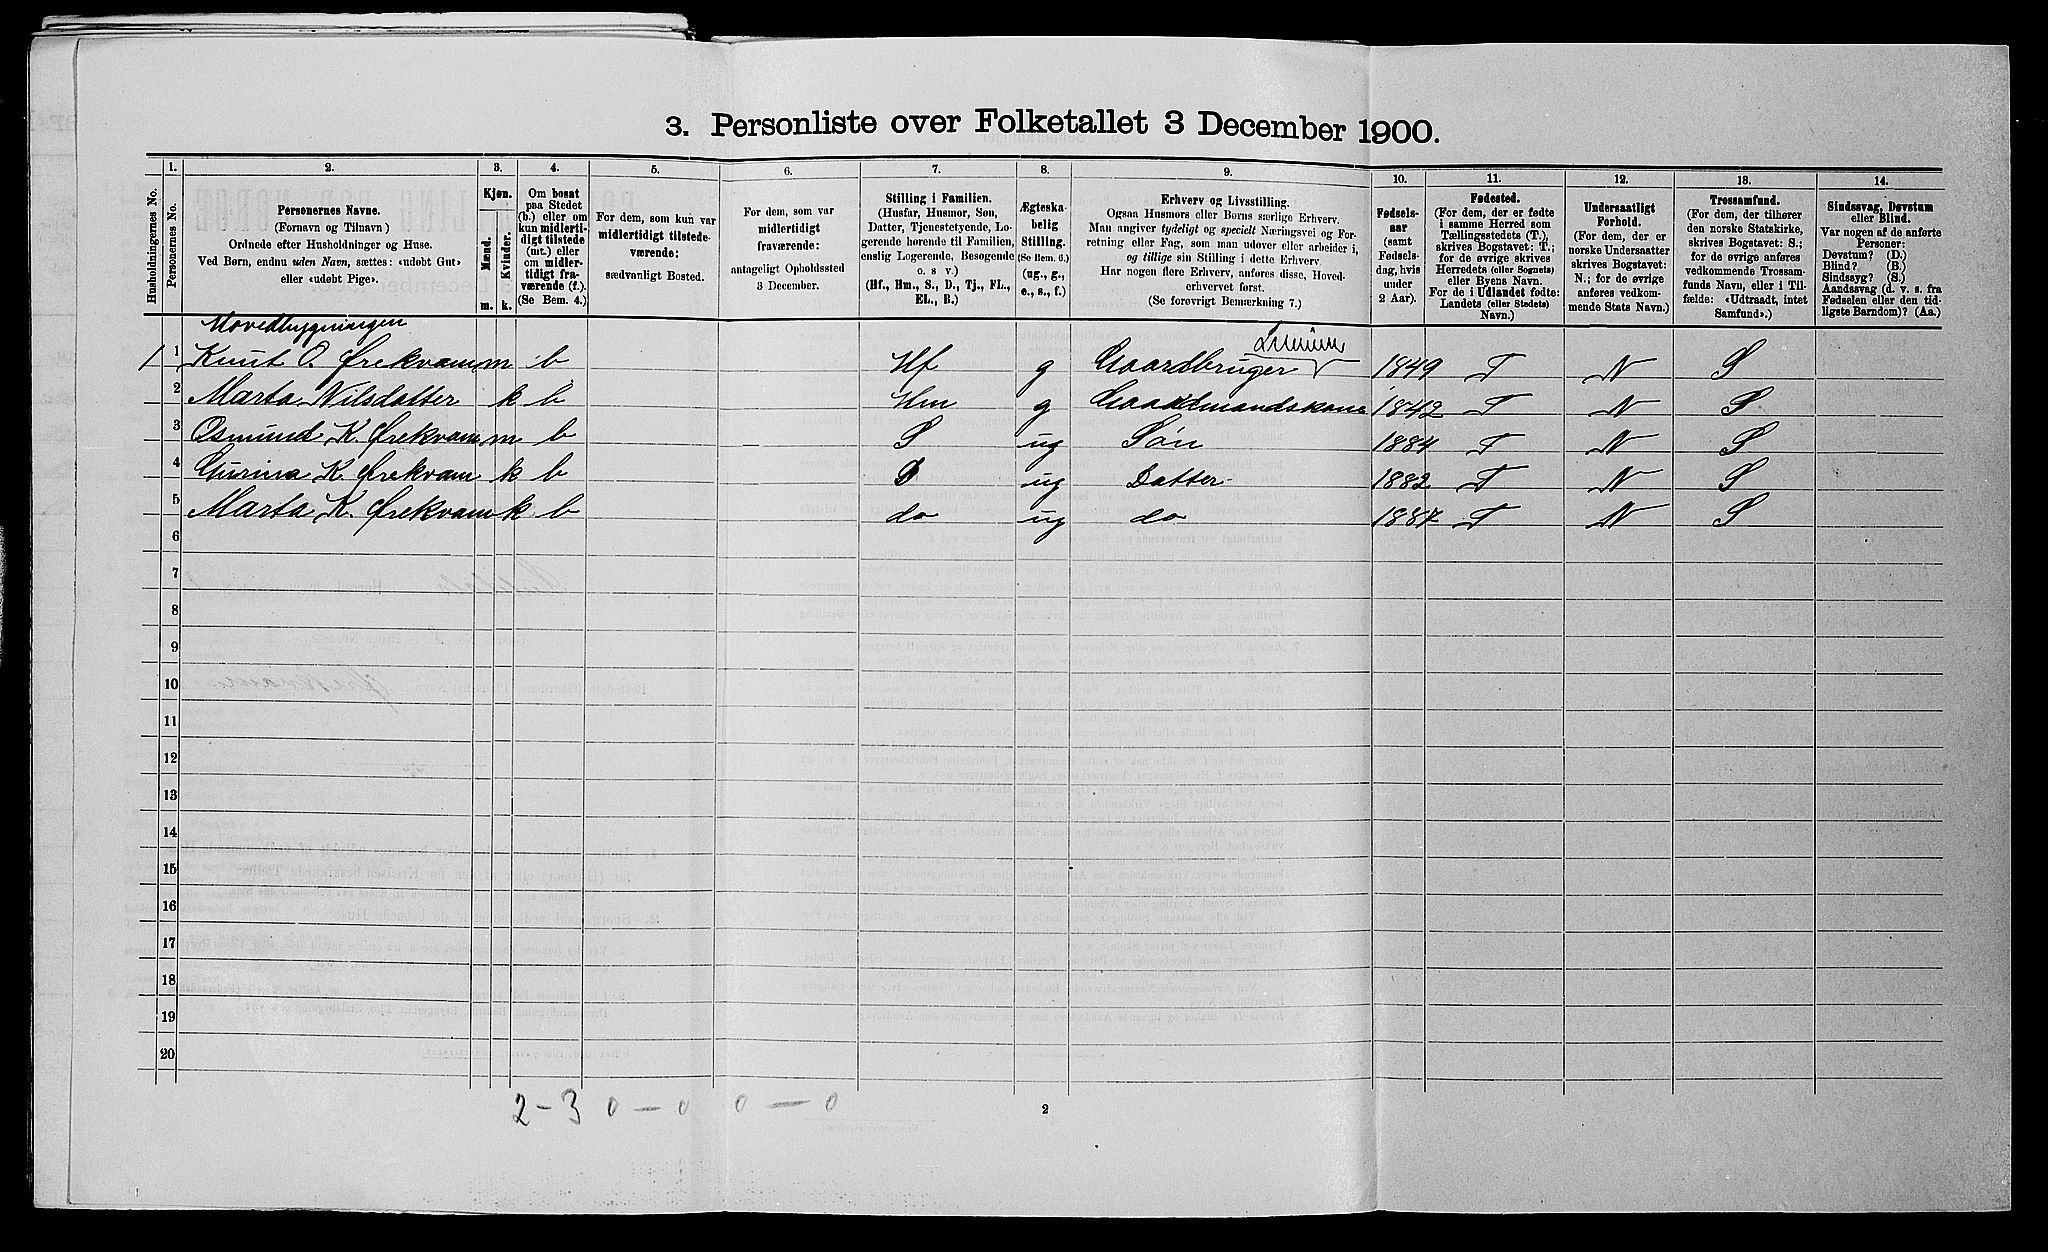 3. Personliste over Folketallet 3 December 1900.
Husholdningernes No.
1.
Personernes No.
2.
Personernes Navne.
(Fornavn og Tilnavn)
Ordnede efter Husholdninger og Huse.
Ved Børn, endnu uden Navn, sættes: «udøbt Gut»
eller «udøbt Pige».
3.
Kjøn.
Mænd.
Kvinder.
m. k.
4.
Om bosat
paa Stedet
(b.) eller om
kun midler-
tidigt tilstede
(mt.) eller
om midler-
tidigt fra-
værende (f.).
(Se Bem. 4.)
5.
For dem, som kun var
midlertidigt tilstede-
værende:
sædvanligt Bosted.
6.
For dem, som var
midlertidigt
fraværende:
antageligt Opholdssted
3 December.
7.
Stilling i Familien.
(Husfar, Husmor, Søn,
Datter, Tjenestetyende, Lo-
gerende hørende til Familien,
enslig Logerende, Besøgende
o. s v.)
(Hf., Hm., S., D., Tj., FL.,
EL., B.)
8.
Ægteska-
belig
Stilling.
(Se Bem. 6.)
(ug., g.,
e., s., f.)
9.
Erhverv og Livsstilling.
Ogsaa Husmors eller Børns særlige Erhverv.
Man angiver tydeligt og specielt Næringsvei og For-
retning eller Fag, som man udøver eller arbeider i,
og tillige sin Stilling i dette Erhverv.
Har nogen flere Erhverv, anføres disse, Hoved-
erhvervet først.
(Se forøvrigt Bemærkning 7.)
10.
Fødsels-
aar
(samt
Fødsels-
dag, hvis
under
2 Aar).
11.
Fødested.
(For dem, der er fødte
i samme Herred som
Tællingsstedets (T.),
skrives Bogstavet: T.;
for de øvrige skrives
Herredets (eller Sognets)
eller Byens Navn.
For de i Udlandet fødte:
Landets (eller Stedets)
Navn.)
12.
Undersaatligt
Forhold.
(For dem, der er
norske Undersaatter
skrives Bogstavet:
N.; for de øvrige
anføres vedkom-
mende Stats Navn.)
13.
Trossamfund.
(For dem, der tilhører
den norske Statskirke,
skrives Bogstavet: S.;
for de øvrige anføres
vedkommende Trossam-
funds Navn, eller i Til-
fælde: «Udtraadt, intet
Samfund».)
14.
Sindssvag, Døvstum
eller Blind.
Var nogen af de anførte
Personer:
Døvstum? (D.)
Blind? (B.)
Sindssyg? (S.)
Aandssvag (d. v. s. fra
Fødselen eller den tid-
ligste Barndom)? (Aa.)
Hovedbygningen
1 1 Knut O. Ørekvam m b Hf g Gaardbruger 1849 T N S
2 Marta Nilsdatter k b Hm g Gaardmandskone 1842 T N S
3 Osmund K. Ørekvam m b S ug Søn 1884 T N S
4 Gurina K. Ørekvam k b D ug Datter 1882 T N S
5 Marta K. Ørekvam k b do ug do 1887 T N S
6
7
8
9
10
11
12
13
14
15
16
17
18
19
20
2-3 0-0 0-0
2